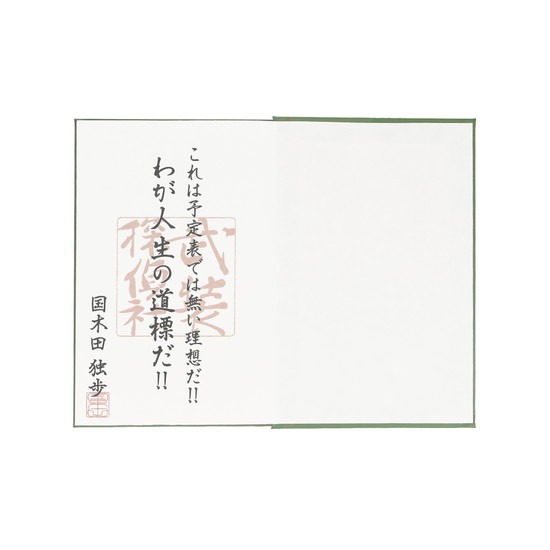 これは予定表では無い理想だ!!
わが人生の道標だ!!
国木田 独歩
武装
探偵社